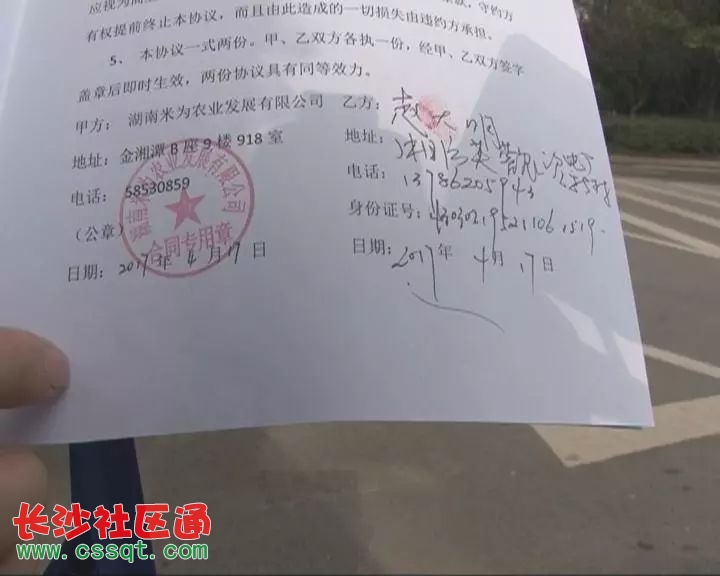 应视为
有权提前终止本协议，而且由此造成的一切损失由违约方承担。
5、 本协议一式两份。甲、乙双方各执一份，经甲、乙双方签字
盖章后即时生效，两份协议具有同等效力。
甲方： 湖南米为农业发展有限公司 乙方：
地址：金湘潭 B 座 9 楼 918 室 地址：
电话： 58530859 电话： 13786205943
（公章） 身份证号：430302195211061519.
日期：2017年 4 月 17 日 日期：2017年 4 月 17 日
湖南米为农业发展有限公司
合同专用章
长沙社区通
www.cssqt.com